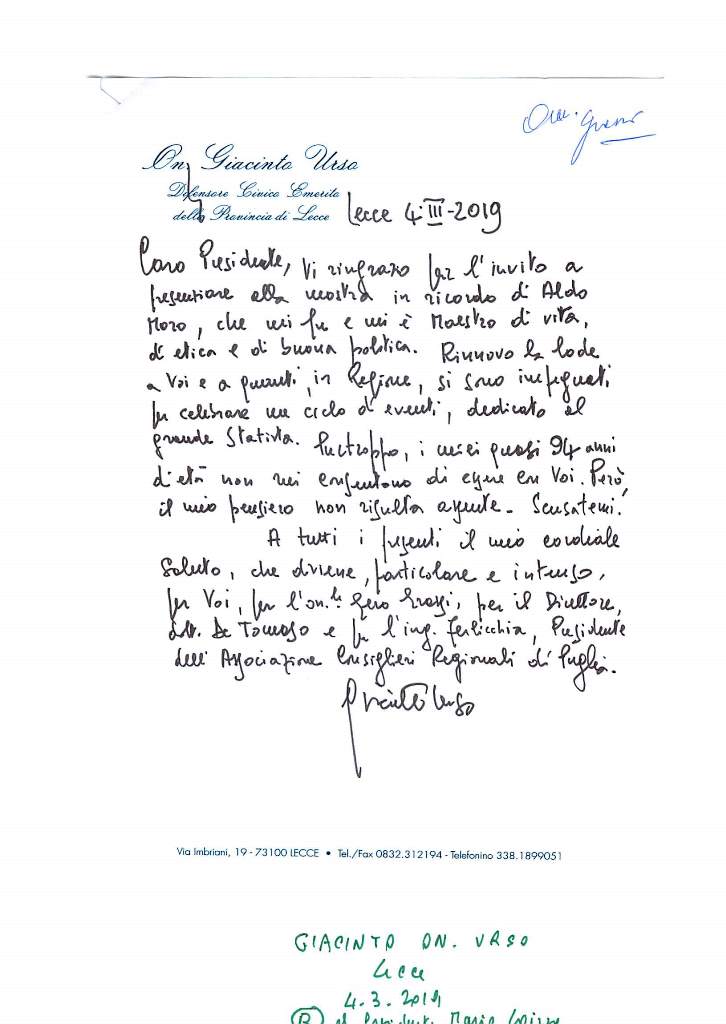 On. Giacinto Urso
Difensore Civico Emerito
della Provincia di Lecce
Lecce 4-III-2019
Caro Presidente, Vi ringrazio per l'invito a
presenziare alla mostra in ricordo di Aldo
Moro, che mi fu e mi è Maestro di vita,
di etica e di buona politica. Rinnovo la lode
a Voi e a quanti, in Regione, si sono impegnati
per celebrare un ciclo d'eventi, dedicato al
grande Statista. Purtroppo, i miei quasi 94 anni
d'età non mi consentono di essere con Voi. Però
il mio pensiero non risulta assente. Scusatemi!
A tutti i presenti il mio cordiale
saluto, che diviene, particolare e intenso,
per Voi, per l'on.le Gero Grassi, per il Direttore,
dott. De Tomaso e per l'ing. Ferlicchia, Presidente
dell'Associazione Consiglieri Regionali di Puglia.
Giacinto Urso
Via Imbriani, 19 - 73100 LECCE • Tel./Fax 0832.312194 - Telefonino 338.1899051
GIACINTO ON. URSO
Lecce
4.3.2019
al Presidente Mario